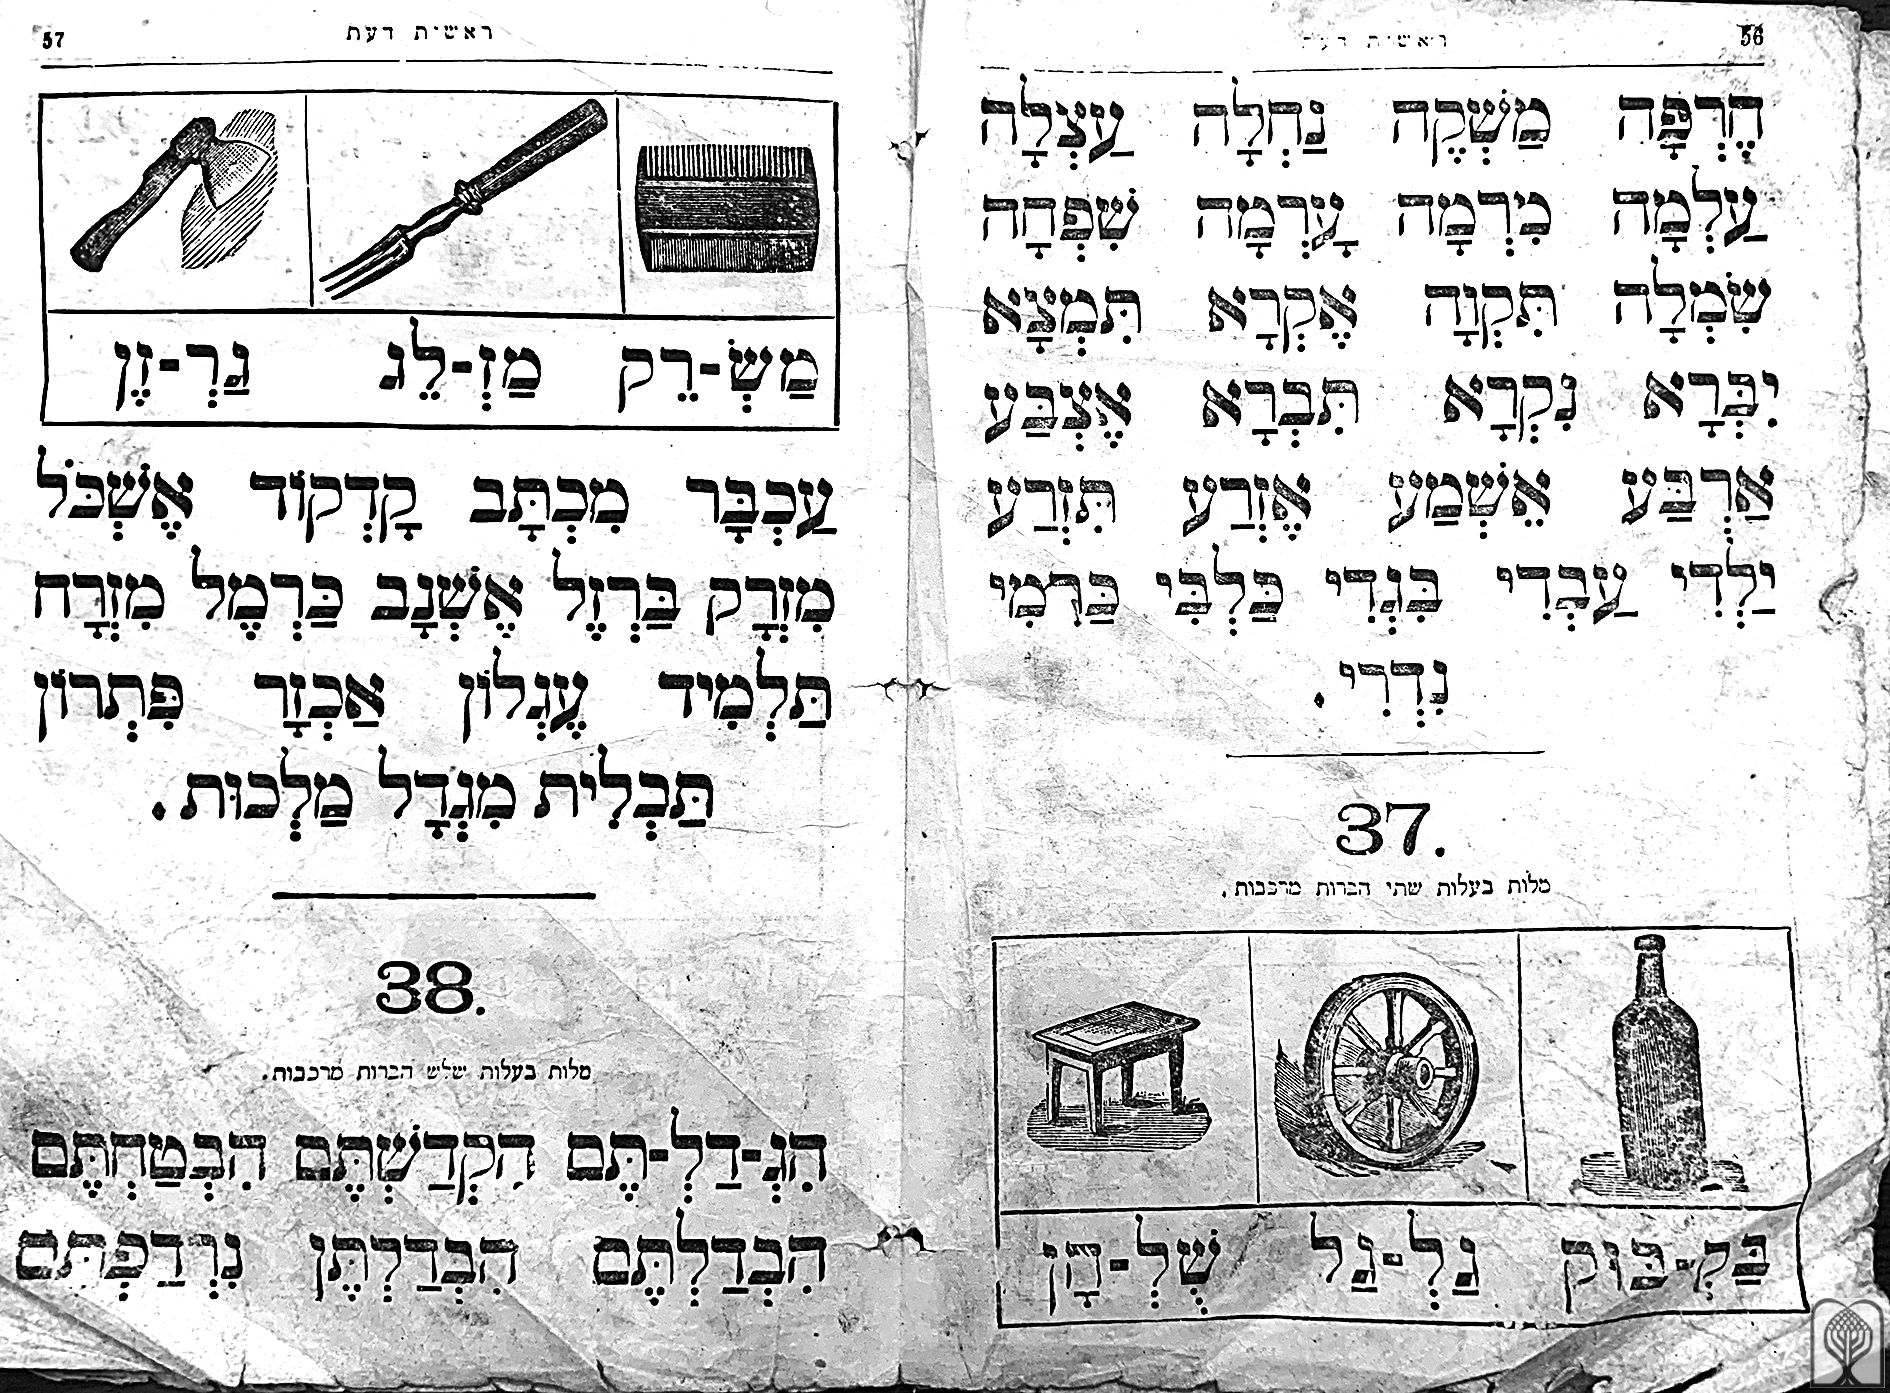 56
ראשית דעת
הֶרְפָּה מַשְׁקֶה נַחְלָה עַצְלָה
עַלְמָה מִרְמָה עָרְמָה שִׁפְחָה
שִׂמְלָה תִּקְוָה אֶקְרָא תִּמְצָא
יִבְּרָא נִקְרָא תִּבְרָא אֶצְבַּע
אַרְבַּע אֶשְׁמַע אֶזְרַע תִּזְרַע
יַלְדִי עַבְדִי בִּגְדִי כַּלְבִּי כַּרְמִי
נִדְרִי.
37.
מלות בעלות שתי הברות מרכבות.
בַּקְ-בּוּק גַלְ-גַל שֻׁלְ-חָן
57
ראשית דעת
מַשְׂ-רֵק מַזְ-לֵג גַרְ-זֶן
עַכְבָּר מִכְתָּב קָדְקוֹד אֶשְׁכֹּל
מִזְרָק בַּרְזֶל אֶשְׁנָב כַּרְמֶל מִזְרָח
תַּלְמִיד עֶגְלוֹן אַכְזָר פִּתְרוֹן
תַּכְלִית מִגְדָל מַלְכוּת.
38.
מלות בעלות שלש הברות מרכבות.
הִגְ-דַלְ-תֶּם הִקְדַשְׁתֶּם הִבְטַחְתֶּם
הִבְדַלְתֶּם הִבְדַלְתֶּן נִרְדַפְתֶּם